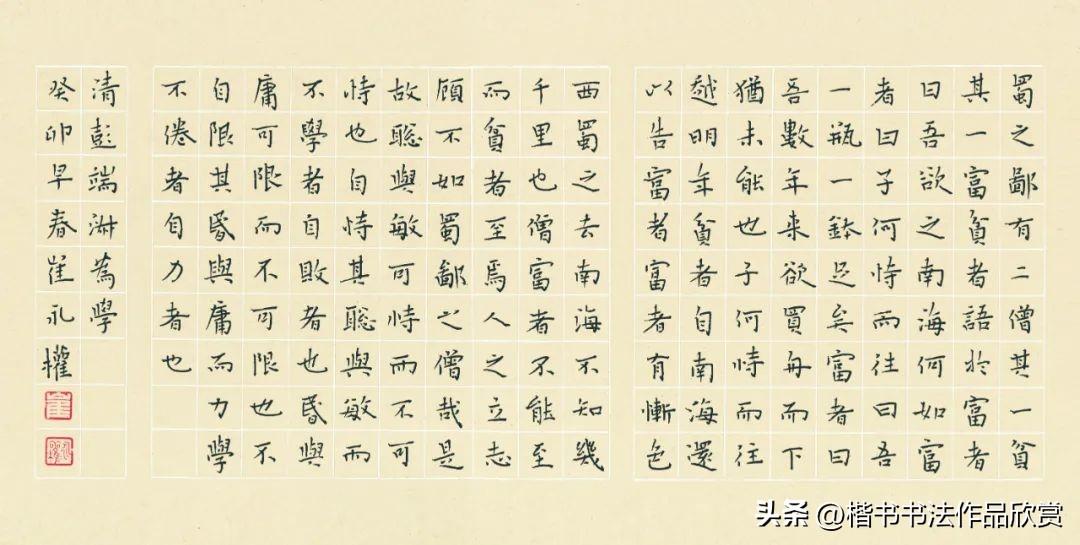 蜀之鄙有二僧其一貧
其一富貧者語於富者
曰吾欲之南海何如富
者曰子何恃而往曰吾
一瓶一鉢足矣富者曰
吾數年来欲買舟而下
猶未能也子何恃而往
越明年貧者自南海還
以告富者富者有慚色
西蜀之去南海不知幾
千里也僧富者不能至
而貧者至焉人之立志
顧不如蜀鄙之僧哉是
故聰與敏可恃而不可
恃也自恃其聰與敏而
不學者自敗者也昏與
庸可限而不可限也不
自限其昏與庸而力學
不倦者自力者也
清彭端淑為學
癸卯早春崔永權
崔
头条 @楷书书法作品欣赏